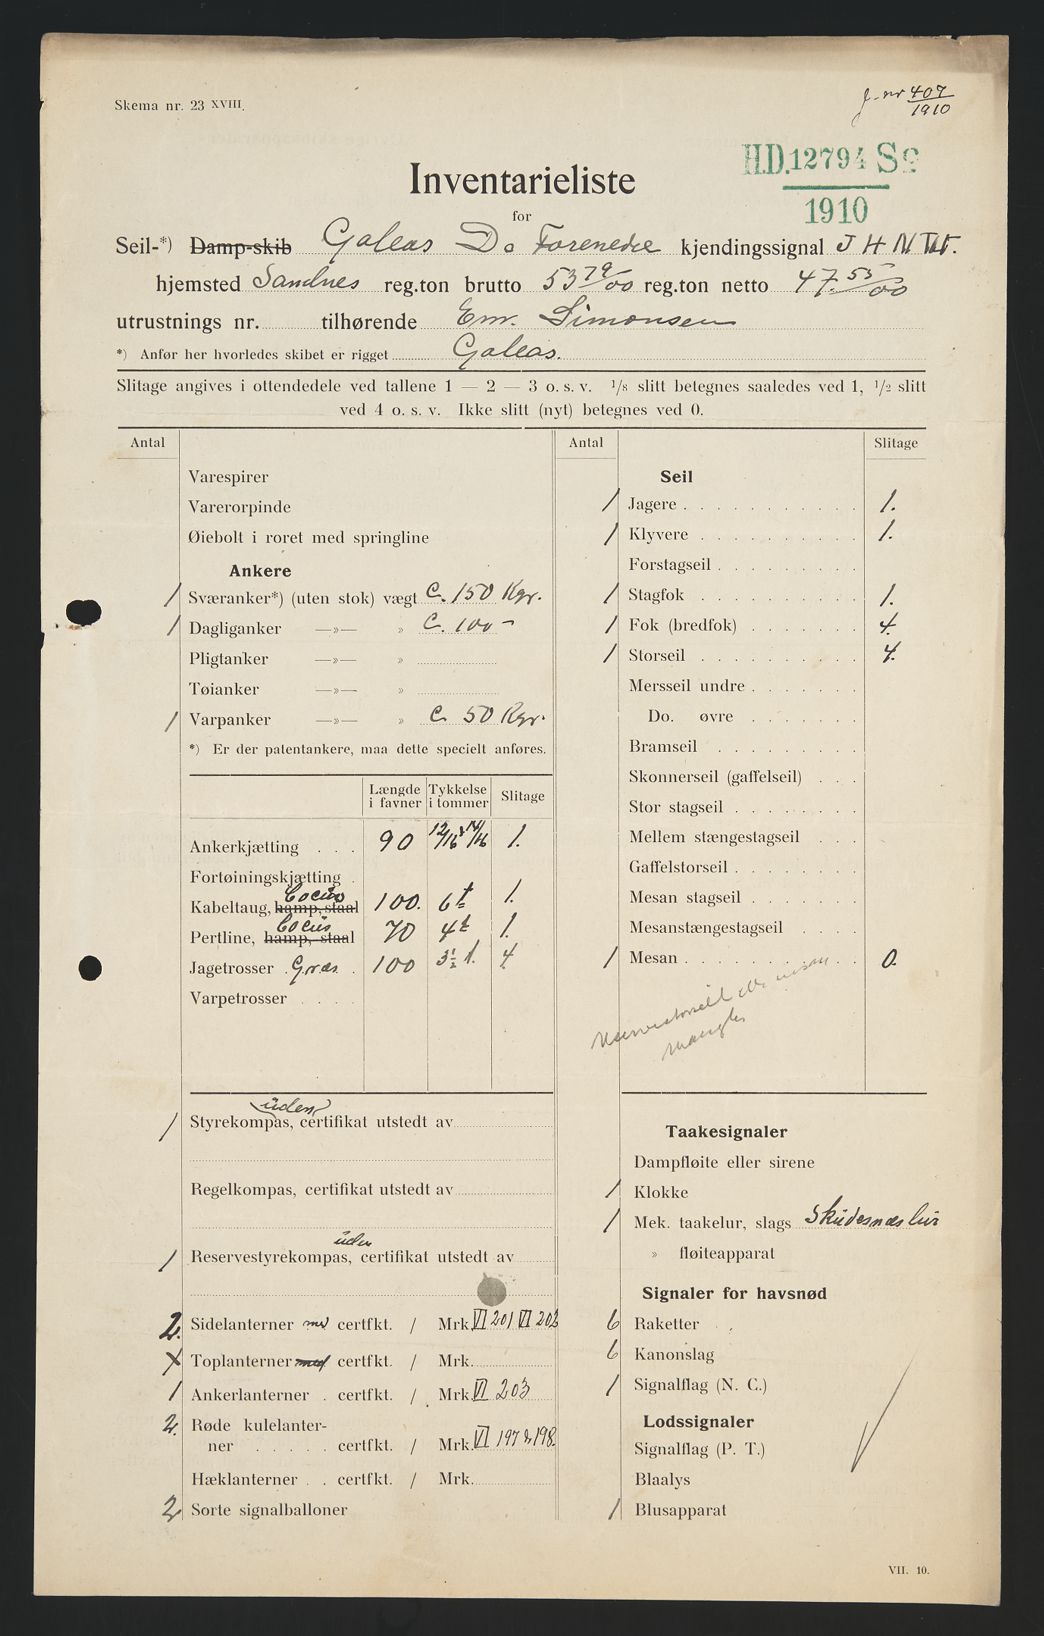 Skema nr. 23 XVIII.
J.-nr 407/1910
H.D. 12794 S
1910
Inventarieliste
for
Seil-*) Damp-skib Galeas De Forenede kjendingssignal J H N
hjemsted Sandnes reg.ton brutto 53 79/00 reg.ton netto 47. 55/00
utrustnings nr. tilhørende Em. Simonsen
*) Anfør her hvorledes skibet er rigget Galeas.
Slitage angives i ottendedele ved tallene 1 — 2 — 3 o. s. v. 1/8 slitt betegnes saaledes ved 1, 1/2 slitt
ved 4 o. s. v. Ikke slitt (nyt) betegnes ved 0.
Antal
Varespirer
Varerorpinde
Øiebolt i roret med springline
Ankere
1 Sværanker*) (uten stok) vægt C. 150 Kgr.
1 Dagliganker —»— » C. 100 -
Pligtanker —»— »
Tøianker —»— »
1 Varpanker —»— » C. 50 Kgr.
*) Er der patentankere, maa dette specielt anføres.
Længde i favner Tykkelse i tommer Slitage
Ankerkjætting . . . 90 12/16 & 14/16 1.
Fortøiningskjætting .
Cocus
Kabeltaug, hamp, staal 100. 6 t 1.
Cocus
Pertline, hamp, staal 70 4 t 1.
Jagetrosser . Græs . 100 3 1/2 t. 4.
Varpetrosser . . . .
uden
1 Styrekompas, certifikat utstedt av
Regelkompas, certifikat utstedt av
uden
1 Reservestyrekompas, certifikat utstedt av
2. Sidelanterner med certfkt. / Mrk. VI 201 VI 202
X Toplanterner med certfkt. / Mrk.
1 Ankerlanterner . certfkt. / Mrk. VI 203
2. Røde kulelanter-
ner . . . . . certfkt. / Mrk. VI 197 & 198.
Hæklanterner . . certfkt. / Mrk.
2 Sorte signalballoner
Antal Slitage
Seil
1 Jagere . . . . . . . . . . . 1.
1 Klyvere . . . . . . . . . . 1.
Forstagseil . . . . . . . . .
1 Stagfok . . . . . . . . . . 1.
1 Fok (bredfok) . . . . . . . 4.
1 Storseil . . . . . . . . . . 4.
Mersseil undre . . . . . . .
Do. øvre . . . . . . .
Bramseil . . . . . . . . .
Skonnerseil (gaffelseil) . . .
Stor stagseil . . . . . . . .
Mellem stængestagseil . . .
Gaffelstorseil . . . . . . . .
Mesan stagseil . . . . . . .
Mesanstængestagseil . . . .
1 Mesan . . . . . . . . . . . 0.
mesan
mangler
Taakesignaler
Dampfløite eller sirene
1 Klokke
1 Mek. taakelur, slags Skudesnæslur
» fløiteapparat
Signaler for havsnød
6 Raketter
6 Kanonslag
1 Signalflag (N. C.)
Lodssignaler
Signalflag (P. T.)
Blaalys
1 Blusapparat
VII. 10.